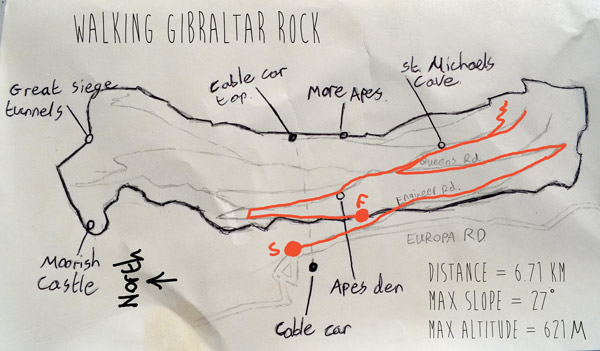 WALKING GIBRALTAR ROCK
Great siege
tunnels
Cable car
top.
More Apes.
St. Michaels
Cave.
Queens Rd.
Engineer Rd.
F
S
EUROPA RD
Moorish
Castle
North
Apes den
Cable car
DISTANCE = 6.71 KM
MAX SLOPE = 27°
MAX ALTITUDE = 621M